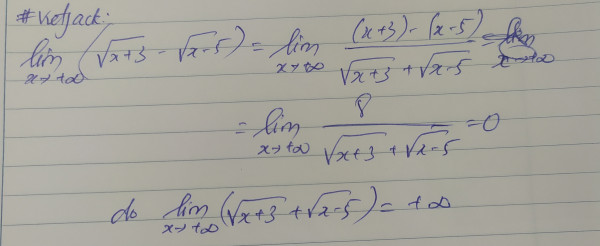 #Ketjack:
lim x→+∞ (√x+3 - √x-5) = lim x→+∞ (x+3)-(x-5) / √x+3 + √x-5
= lim x→+∞ 8 / √x+3 + √x-5 = 0
do lim x→+∞ (√x+3 + √x-5) = +∞